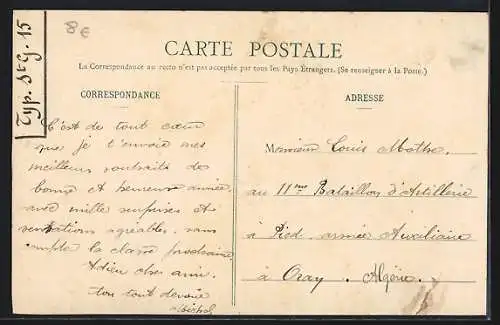 8€
Typ. St G. 15
CARTE POSTALE
La Correspondance au recto n'est pas acceptée par tous les Pays Étrangers. (Se renseigner à la Poste.)
CORRESPONDANCE
C'est de tout cœur
que je t'envoie mes
meilleurs souhaits de
bonne et heureuse année
avec mille surprises et
agréables. sans
la classe prochaine
Adieu cher ami.
ton tout dévoué
ADRESSE
Monsieur Louis Mothe.
au 11me Bataillon d'Artillerie
à Pied armée Auxiliaire
à Oray. Algérie.